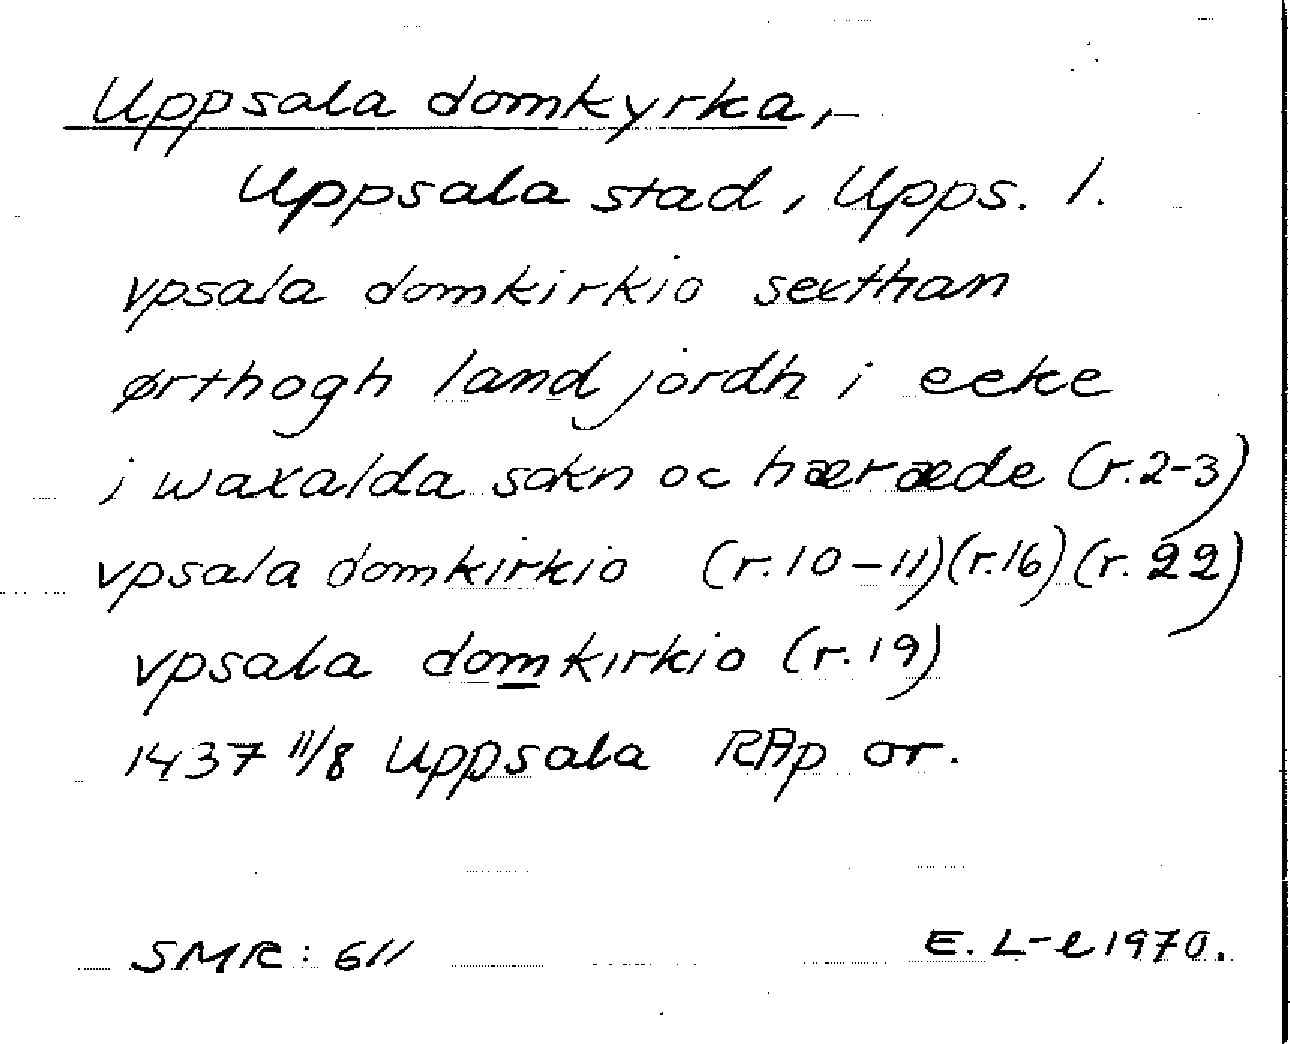 Uppsala domkyrka,
Uppsala stad, Upps. l.
vpsala domkirkio sexthan
ørthogh land jordh i eeke
i waxalda sokn oc hæræde (r.2-3)
vpsala domkirkio (r.10-11)(r.16)(r.22)
vpsala domkirkio (r.19)
1437 11/8 Uppsala RAp or.
SMR: 611 E. L-l 1970.